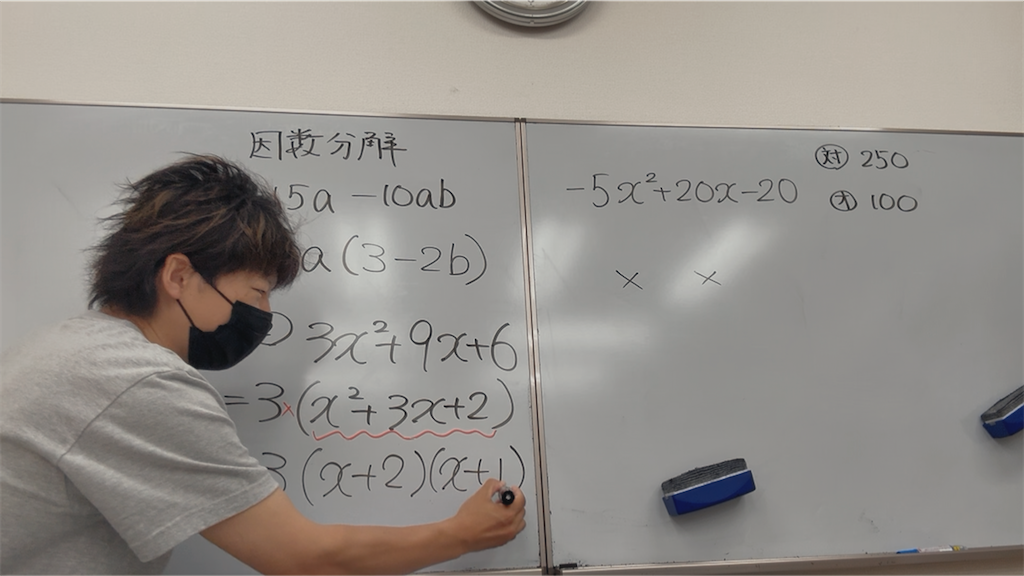 因数分解
15a -10ab
a(3-2b)
3x²+9x+6
=3×(x²+3x+2)
3(x+2)(x+1)
-5x²+20x-20
× ×
対 250
オ 100